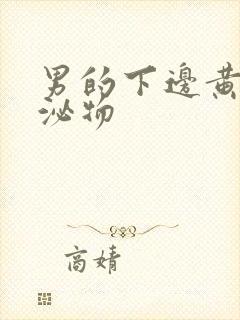 男的下邊黃
泌物
高婧